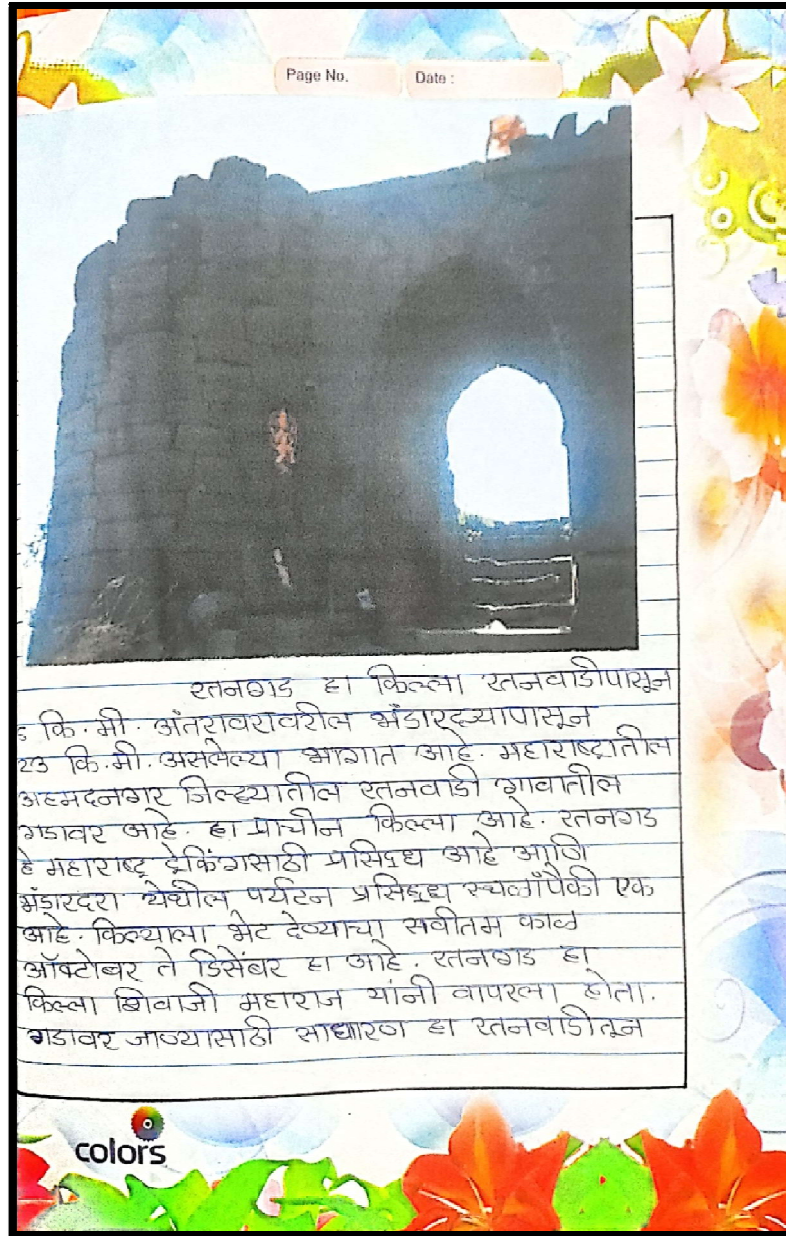 Page No.
Date :
रतनगड हा किल्ला रतनवाडीपासून
६ कि.मी. अंतरावरावरील भंडारदऱ्यापासून
२३ कि.मी. असलेल्या भागात आहे. महाराष्ट्रातील
अहमदनगर जिल्ह्यातील रतनवाडी गावातील
गडावर आहे. हा प्राचीन किल्ला आहे. रतनगड
हे महाराष्ट्र ट्रेकिंगसाठी प्रसिद्ध आहे आणि
भंडारदरा येथील पर्यटन प्रसिद्ध स्थळांपैकी एक
आहे. किल्याला भेट देण्याचा सर्वातम काळ
ऑक्टोबर ते डिसेंबर हा आहे. रतनगड हा
किल्ला शिवाजी महाराज यांनी वापरला होता.
गडावर जाण्यासाठी साधारण हा रतनवाडीतून
colors